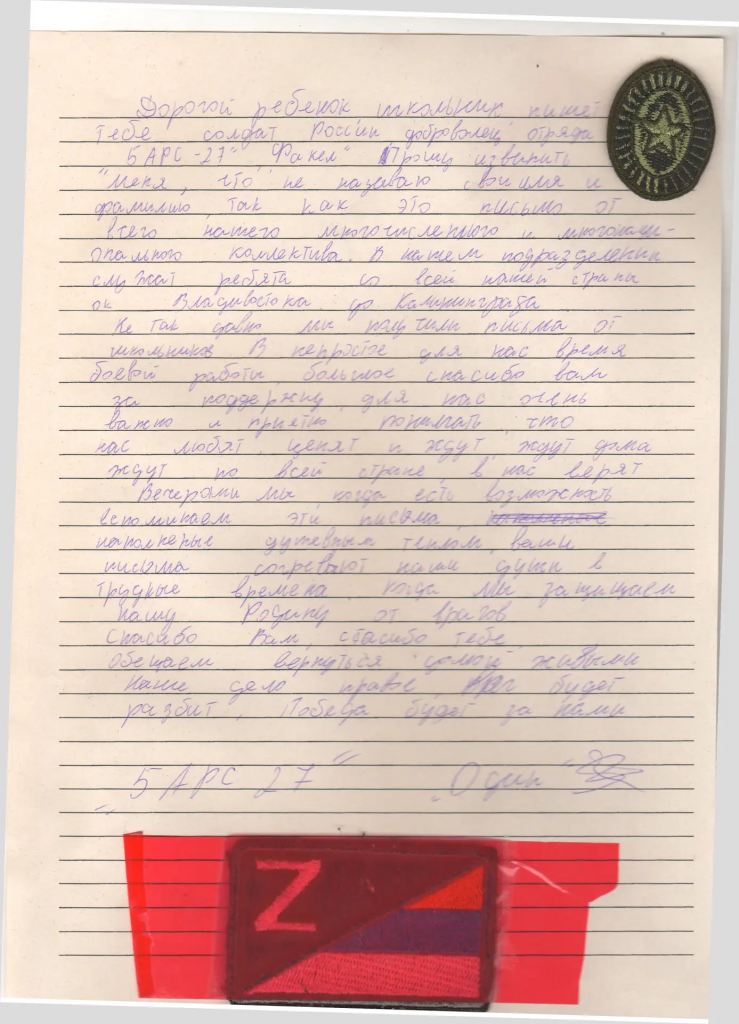 Дорогой ребенок школьник пишет
тебе солдат России доброволец отряда
"БАРС-27" "Факел" Прошу извинить
меня, что не называю своимя и
фамилию, так как это письмо от
всего нашего многочисленного и многонаци-
онального коллектива. В нашем подразделении
служат ребята со всей нашей страны
от Владивостока до Калининграда
Не так давно мы получили письма от
школьников В непростое для нас время
боевой работы, большое спасибо вам
за поддержку, для нас очень
важно и приятно понимать, что
нас любят, ценят и ждут, ждут дома
ждут по всей стране, в нас верят
Вечерами мы, когда есть возможность
вспоминаем эти письма,
наполненые душевным теплом, ваши
письма согревают наши души в
трудные времена, когда мы защищаем
нашу Родину от врагов
Спасибо Вам, спасибо тебе,
Обещаем вернуться домой живыми
Наше дело правое, враг будет
разбит, Победа будет за нами
"БАРС 27" "Один"
Z